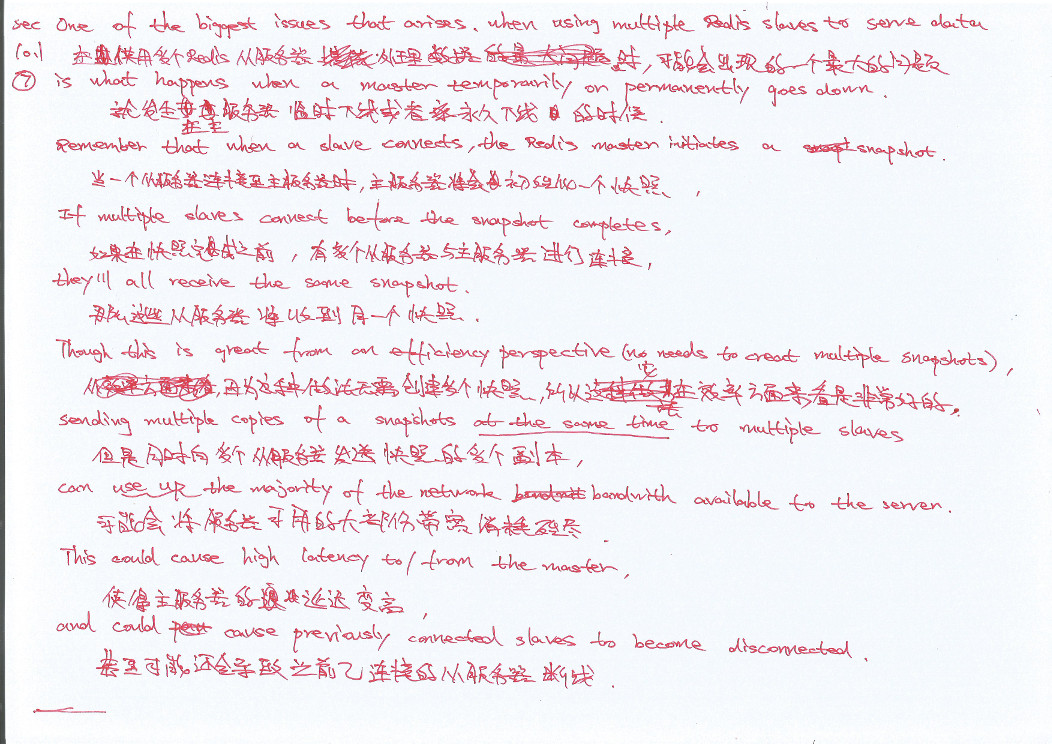 sec One of the biggest issues that arises. when using multiple Redis slaves to serve data
10.1 在使用多个Redis从服务器处理数据时，可能会出现的一个最大的问题
⑦ is what happens when a master temporarily or permanently goes down.
发生在主服务器临时下线或者永久下线的时候.
Remember that when a slave connects, the Redis master initiates a snapshot.
当一个从服务器连接至主服务器时，主服务器将会初始化一个快照，
If multiple slaves connect before the snapshot completes,
如果在快照完成之前，有多个从服务器与主服务器进行连接，
they'll all receive the same snapshot.
那么这些从服务器将收到同一个快照.
Though this is great from an efficiency perspective (no needs to creat multiple snapshots),
从，因为这种做法无需创建多个快照，所以这种做法在效率方面来看是非常好的，
sending multiple copies of a snapshots at the same time to multiple slaves
但是同时向多个从服务器发送快照的多个副本，
can use up the majority of the network bandwith available to the server.
可能会将服务器可用的大部份带宽消耗殆尽.
This could cause high latency to/from the master,
使得主服务器的延迟变高，
and could cause previously connected slaves to become disconnected.
甚至可能还会导致之前已连接的从服务器断线.